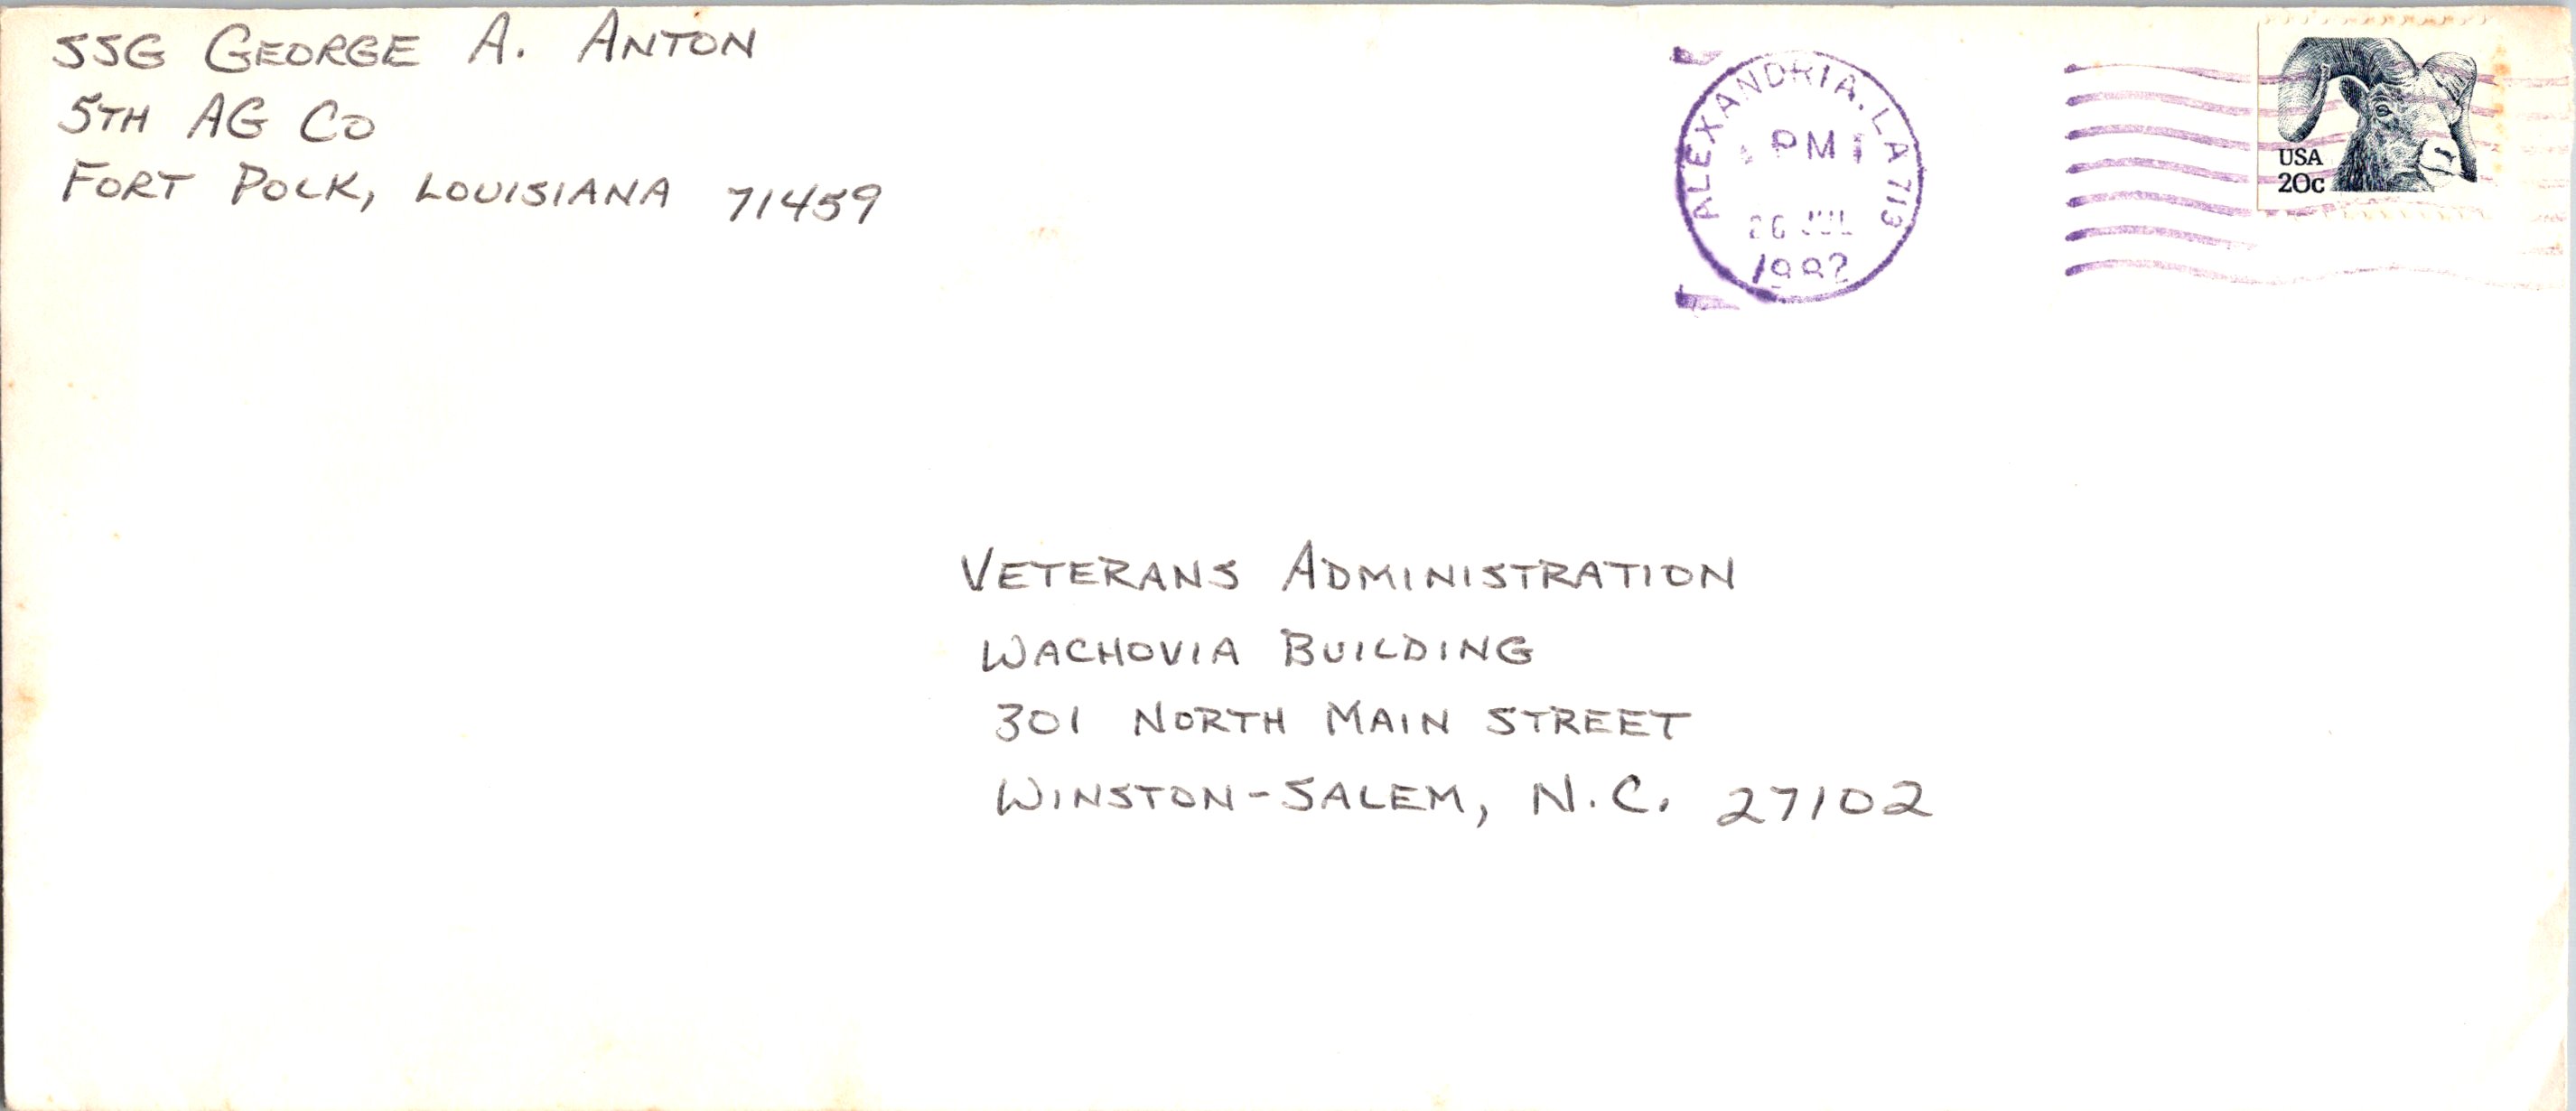 SSG GEORGE A. ANTON
5TH AG CO
FORT POLK, LOUISIANA 71459
ALEXANDRIA, LA 713
PM
JUL
1982
USA
20c
VETERANS ADMINISTRATION
WACHOVIA BUILDING
301 NORTH MAIN STREET
WINSTON-SALEM, N.C. 27102